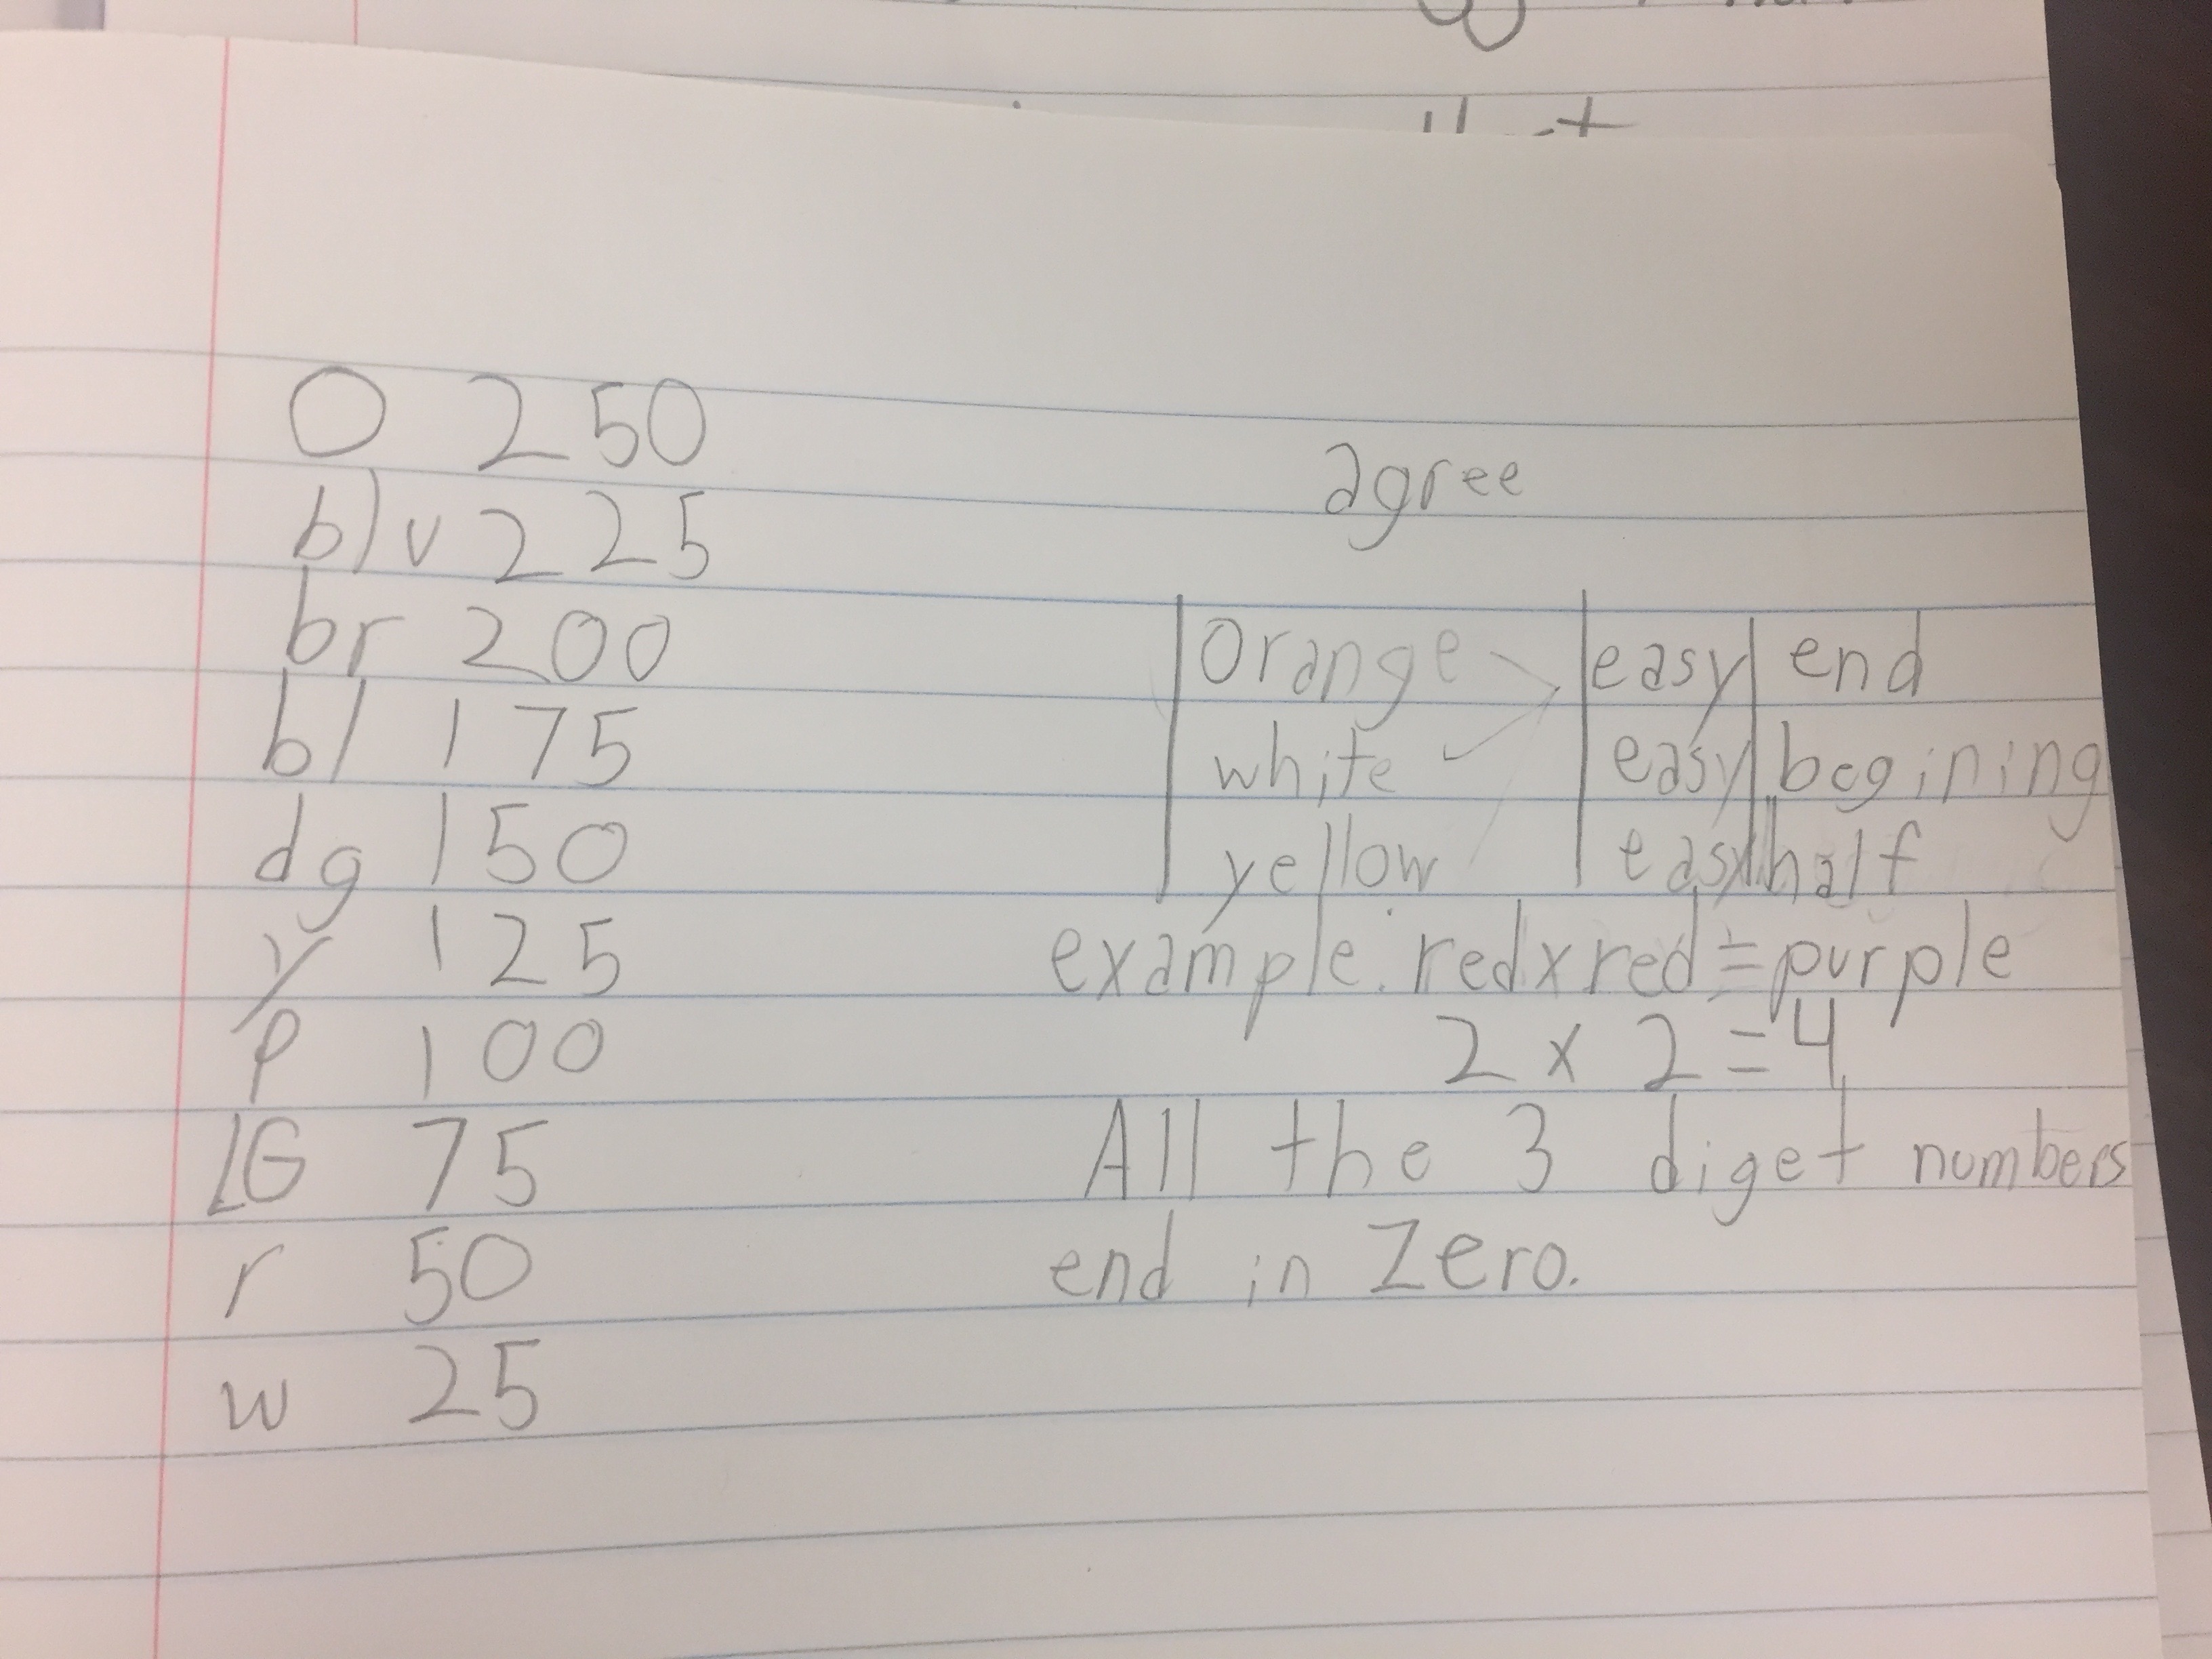 O 250
blv 225
br 200
bl 175
dg 150
y 125
p 100
LG 75
r 50
w 25
agree
Orange easy end
white easy begining
yellow easy half
example: red x red = purple
2 x 2 = 4
All the 3 diget numbers
end in Zero.